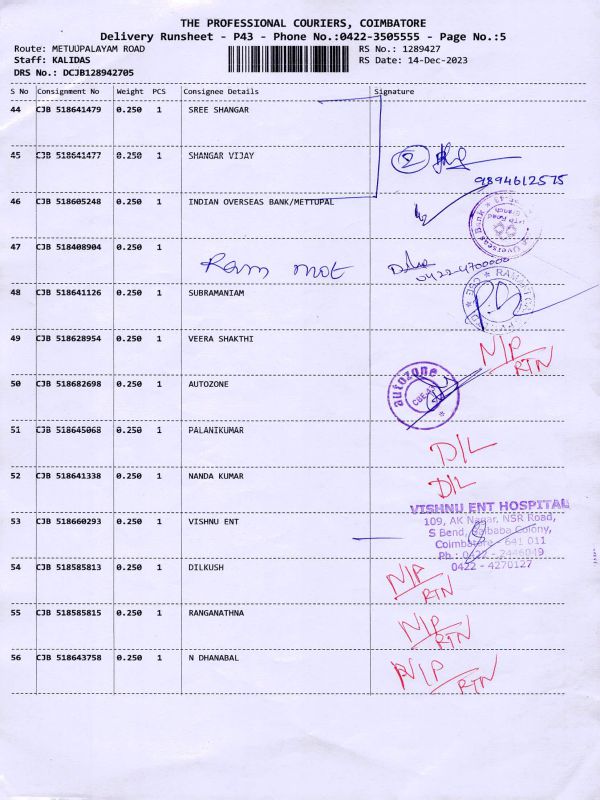 THE PROFESSIONAL COURIERS, COIMBATORE
Delivery Runsheet - P43 - Phone No.:0422-3505555 - Page No.:5
Route: METUUPALAYAM ROAD RS No.: 1289427
Staff: KALIDAS RS Date: 14-Dec-2023
DRS No.: DCJB128942705
S No Consignment No Weight PCS Consignee Details Signature
44 CJB 518641479 0.250 1 SREE SHANGAR
45 CJB 518641477 0.250 1 SHANGAR VIJAY
2
9894612575
46 CJB 518605248 0.250 1 INDIAN OVERSEAS BANK/METTUPAL
Overseas Bank
47 CJB 518408904 0.250 1
Ram mot
0422-4700000
48 CJB 518641126 0.250 1 SUBRAMANIAM
49 CJB 518628954 0.250 1 VEERA SHAKTHI N/P RTN
50 CJB 518682698 0.250 1 AUTOZONE autozone
51 CJB 518645068 0.250 1 PALANIKUMAR D/L
52 CJB 518641338 0.250 1 NANDA KUMAR D/L
53 CJB 518660293 0.250 1 VISHNU ENT
VISHNU ENT HOSPITAL
109, AK Nagar, NSR Road,
S Bend, Saibaba Colony,
Coimbatore - 641 011
Ph : 0422 - 2446049
0422 - 4270127
54 CJB 518585813 0.250 1 DILKUSH N/P RTN
55 CJB 518585815 0.250 1 RANGANATHNA N/P RTN
56 CJB 518643758 0.250 1 N DHANABAL N/P RTN